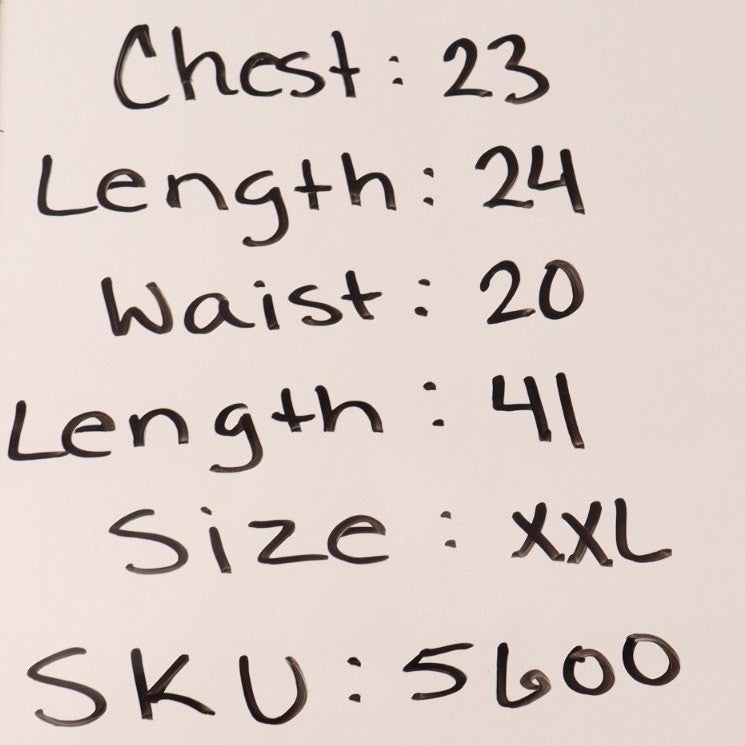 Chest: 23
Length: 24
Waist: 20
Length: 41
Size: XXL
SKU: 5600